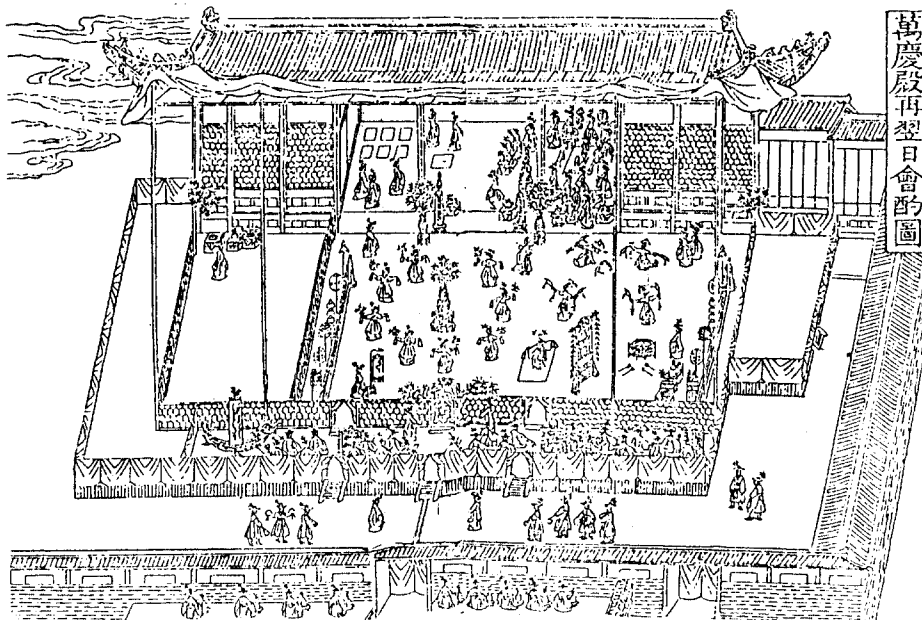 萬慶殿再翌日會酌圖